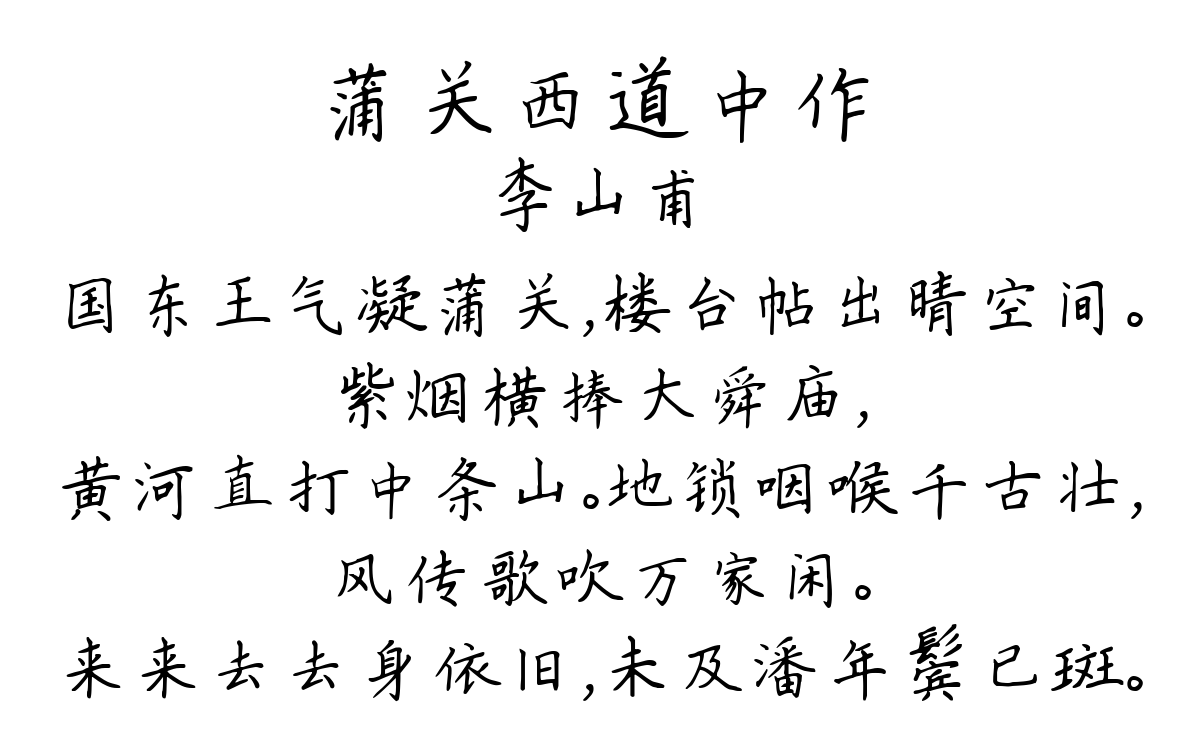 蒲关西道中作
李山甫
国东王气凝蒲关,楼台帖出晴空间。
紫烟横捧大舜庙,
黄河直打中条山。地锁咽喉千古壮,
风传歌吹万家闲。
来来去去身依旧,未及潘年鬓已斑。